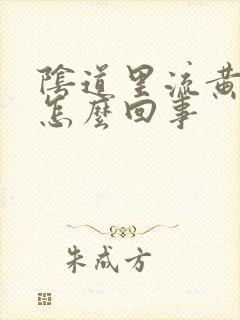 陰道里流黃
怎麼回事
朱成方